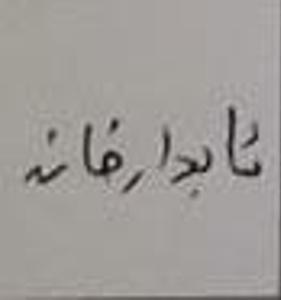 ئابدارخانه